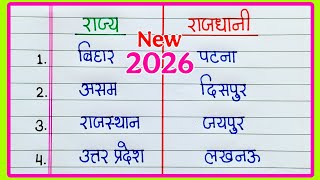 राज्य राजधानी
New
2026
1. बिहार पटना
2. असम दिसपुर
3. राजस्थान जयपुर
4. उत्तर प्रदेश लखनऊ